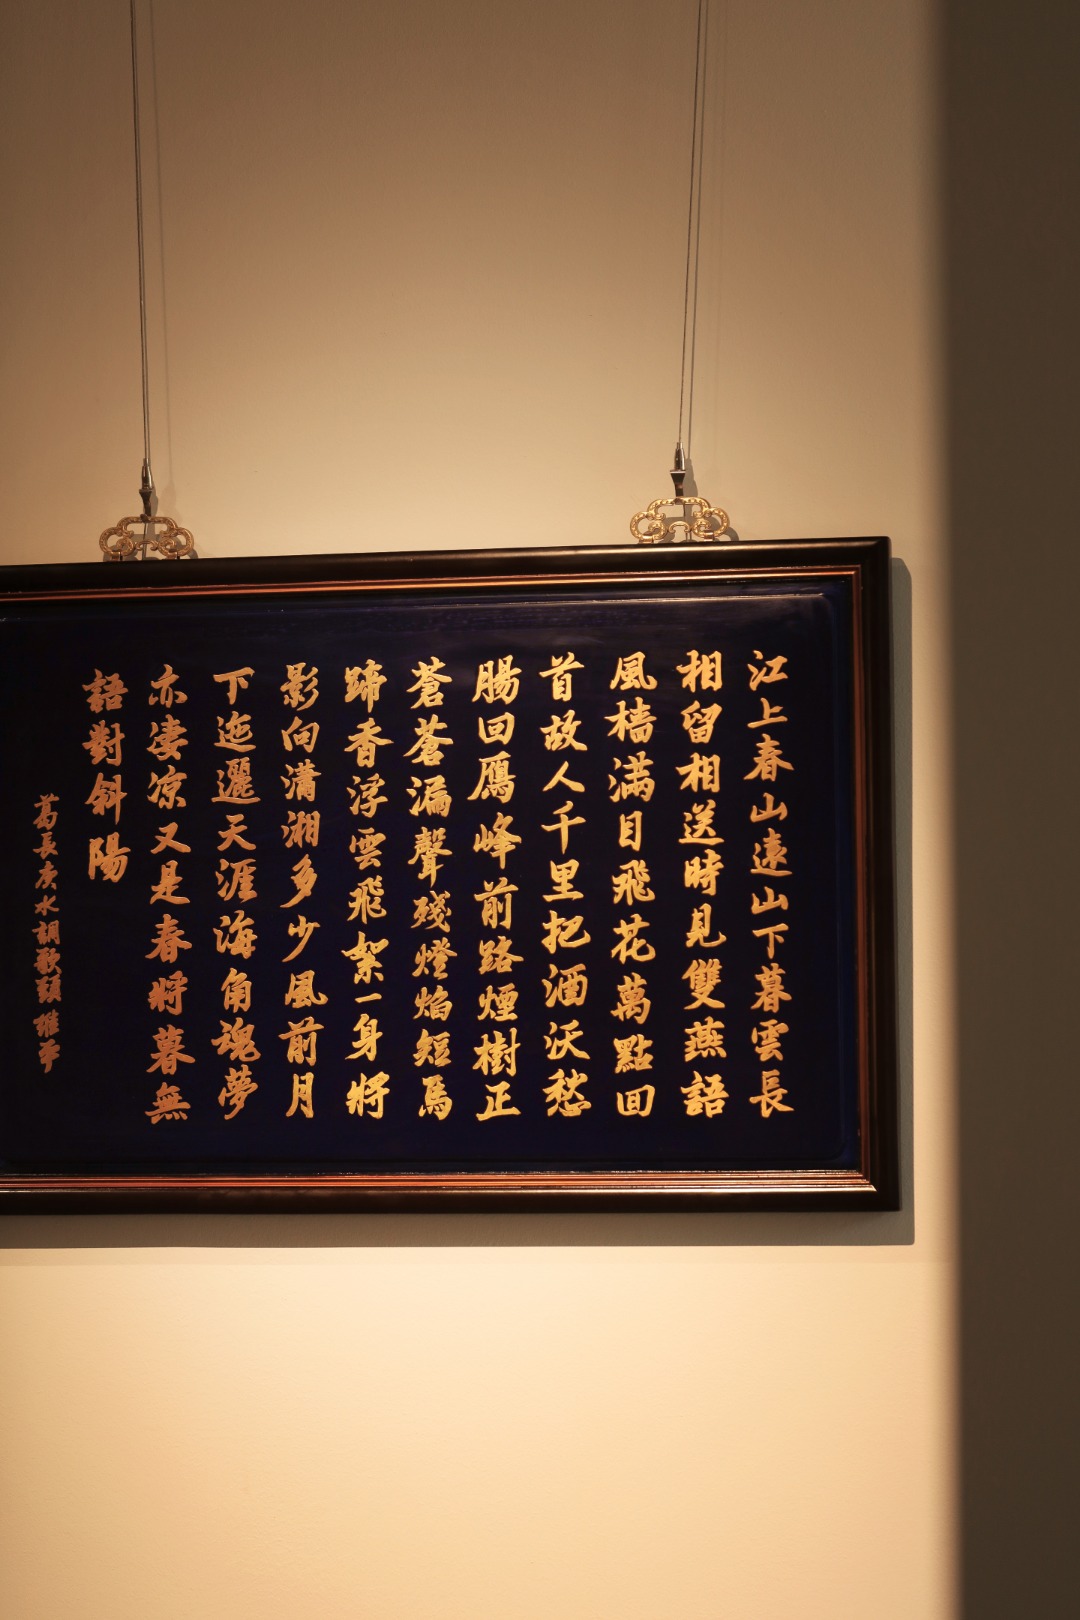 江上春山遠山下暮雲長
相留相送時見雙燕語
風檣滿目飛花萬點回
首故人千里把酒沃愁
腸回鴈峰前路煙樹正
蒼蒼漏聲殘燈焰短馬
蹄香浮雲飛絮一身將
影向瀟湘多少風前月
下迤邐天涯海角魂夢
亦凄凉又是春將暮無
語對斜陽
葛長庚水調歌頭